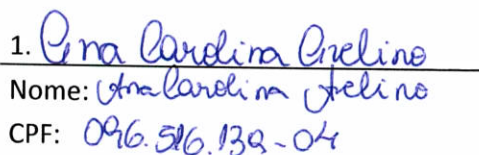 1. Ana Carolina Avelino
Nome: Ana Carolina Avelino
CPF: 096.516.139-04